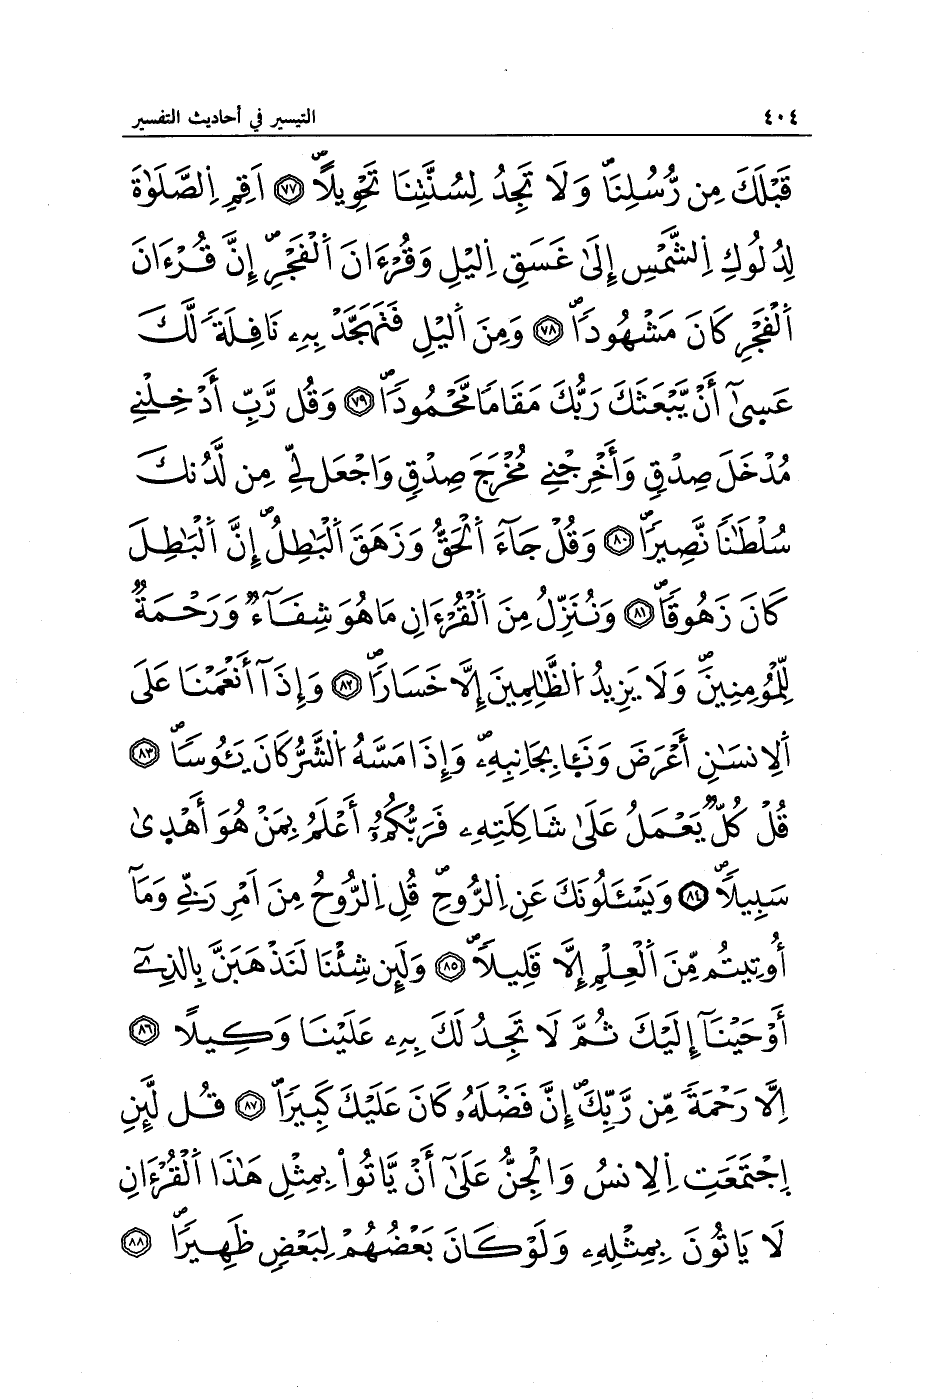 ٤٠٤ التيسير في أحاديث التفسير
قَبْلَكَ مِن رُّسُلِنَاۖ وَلَا تَجِدُ لِسُنَّتِنَا تَحْوِيلًاۖ ٧٧ اَقِمِ اِ۬لصَّلَوٰةَ
لِدُلُوكِ اِ۬لشَّمْسِ إِلَىٰ غَسَقِ اِ۬ليْلِ وَقُرْءَانَ اَ۬لْفَجْرِۖ إِنَّ قُرْءَانَ
اَ۬لْفَجْرِ كَانَ مَشْهُودًاۖ ٧٨ وَمِنَ اَ۬ليْلِ فَتَهَجَّدْ بِهِۦ نَافِلَةً لَّكَ
عَسِىٰٓ أَنْ يَّبْعَثَكَ رَبُّكَ مَقَامًا مَّحْمُودًاۖ ٧٩ وَقُل رَّبِّ أَدْخِلْنِے
مُدْخَلَ صِدْقٍ وَأَخْرِجْنِے مُخْرَجَ صِدْقٍ وَاجْعَل لِّے مِن لَّدُنكَ
سُلْطَٰنًا نَّصِيرًاۖ ٨٠ وَقُلْ جَآءَ اَ۬لْحَقُّ وَزَهَقَ اَ۬لْبَٰطِلُۖ إِنَّ اَ۬لْبَٰطِلَ
كَانَ زَهُوقًاۖ ٨١ وَنُنَزِّلُ مِنَ اَ۬لْقُرْءَانِ مَا هُوَ شِفَآءٌ وَرَحْمَةٌ
لِّلْمُؤْمِنِينَۖ وَلَا يَزِيدُ اُ۬لظَّٰلِمِينَ إِلَّا خَسَارًاۖ ٨٢ وَإِذَآ أَنْعَمْنَا عَلَى
اَ۬لِانسَٰنِ أَعْرَضَ وَنَـَٔا بِجَانِبِهِۦۖ وَإِذَا مَسَّهُ اُ۬لشَّرُّ كَانَ يَـُٔوسًاۖ ٨٣
قُلْ كُلٌّ يَعْمَلُ عَلَىٰ شَاكِلَتِهِۦ فَرَبُّكُمُۥٓ أَعْلَمُ بِمَنْ هُوَ أَهْدِىٰ
سَبِيلًاۖ ٨٤ وَيَسْـَٔلُونَكَ عَنِ اِ۬لرُّوحِۖ قُلِ اِ۬لرُّوحُ مِنَ اَمْرِ رَبِّے وَمَآ
أُوتِيتُم مِّنَ اَ۬لْعِلْمِ إِلَّا قَلِيلًاۖ ٨٥ وَلَئِن شِئْنَا لَنَذْهَبَنَّ بِالذِےٓ
أَوْحَيْنَآ إِلَيْكَ ثُمَّ لَا تَجِدُ لَكَ بِهِۦ عَلَيْنَا وَكِيلًا ٨٦
اِلَّا رَحْمَةً مِّن رَّبِّكَۖ إِنَّ فَضْلَهُۥ كَانَ عَلَيْكَ كَبِيرًاۖ ٨٧ قُل لَّئِنِ
اِجْتَمَعَتِ اِ۬لِانسُ وَالْجِنُّ عَلَىٰٓ أَنْ يَّاتُواْ بِمِثْلِ هَٰذَا اَ۬لْقُرْءَانِ
لَا يَاتُونَ بِمِثْلِهِۦ وَلَوْ كَانَ بَعْضُهُمْ لِبَعْضٍ ظَهِيرًاۖ ٨٨